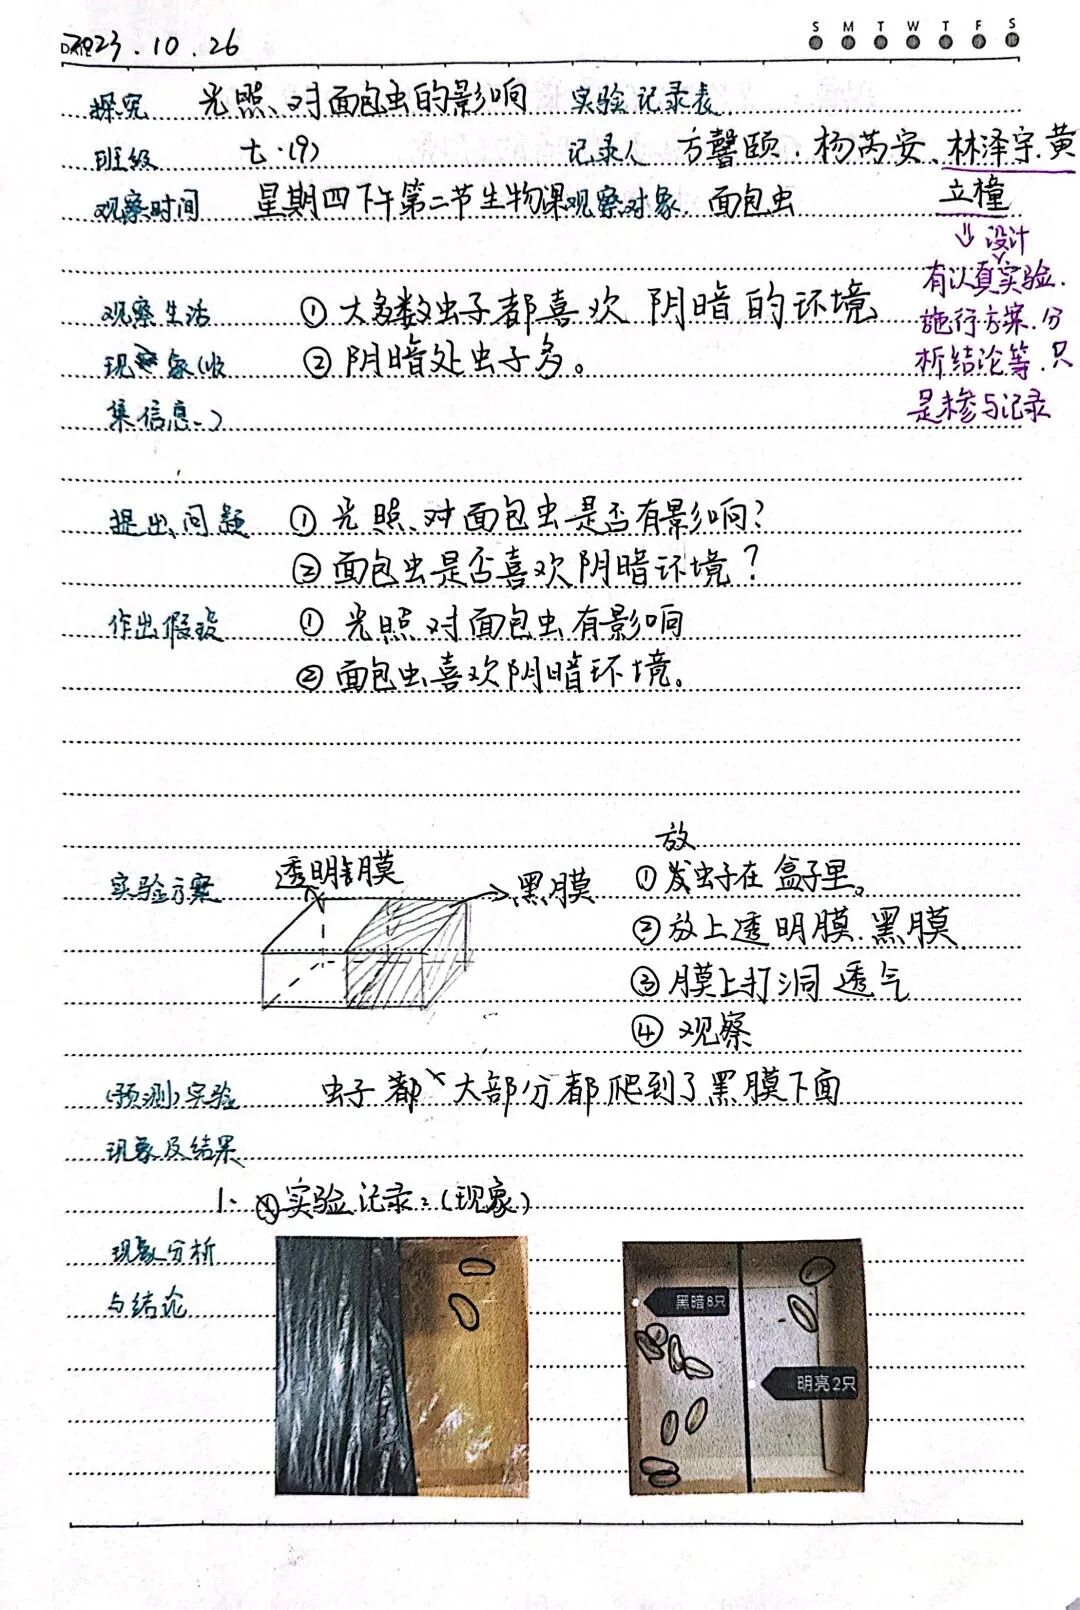 DATE 2023.10.26
S M T W T F S
探究 光照对面包虫的影响 实验记录表
班级 七.(9) 记录人 方馨颐.杨芮安、林泽宇.黄
观察时间 星期四下午第二节生物课 观察对象 面包虫 立橦
⇓ 设计
有认真实验.
观察生活 ①大多数虫子都喜欢阴暗的环境
施行方案.分
现象(收 ②阴暗处虫子多。
析结论等.只
集信息.)
是未参与记录
提出问题 ①光照对面包虫是否有影响?
②面包虫是否喜欢阴暗环境?
作出假设 ①光照对面包虫有影响
②面包虫喜欢阴暗环境。
放
实验方案 透明膜 黑膜 ①发虫子在盒子里。
②放上透明膜.黑膜
③膜上打洞透气
④观察
(预测)实验 虫子都 大部分都爬到了黑膜下面
现象及结果
1. 实验记录:(现象)
现象分析
与结论
黑暗8只
明亮2只